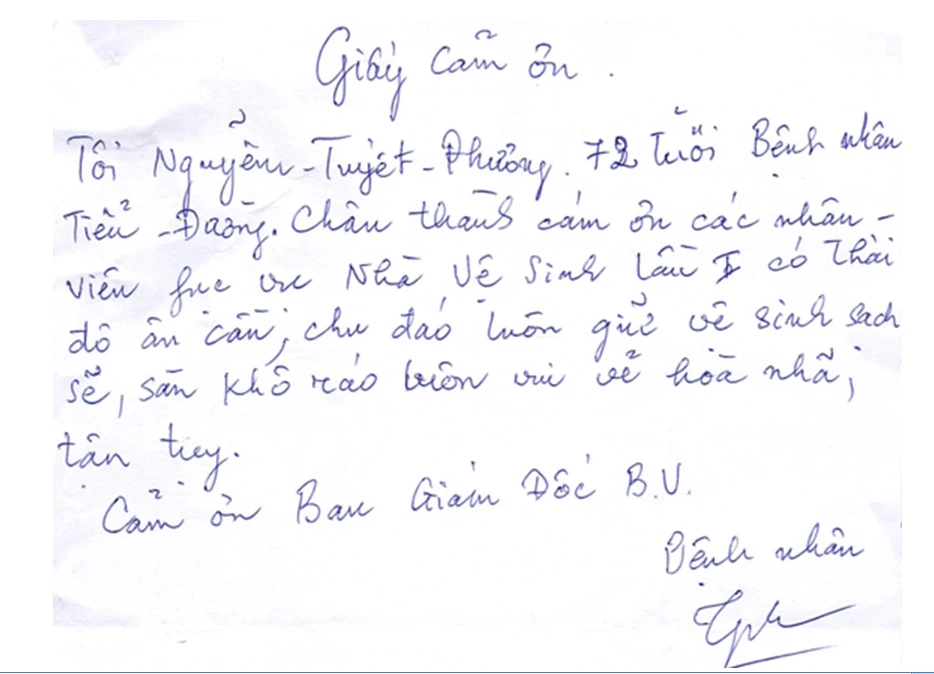 Giấy cảm ơn.
Tôi Nguyễn-Tuyết-Phương. 72 tuổi Bệnh nhân
Tiểu-Đường. Chân thành cảm ơn các nhân-
viên khu vực Nhà Vệ Sinh lầu I có thái
độ ân cần, chu đáo luôn giữ vệ sinh sạch
sẽ, sàn khô ráo luôn vui vẻ hòa nhã,
tận tụy.
Cảm ơn Ban Giám Đốc B.V.
Bệnh nhân